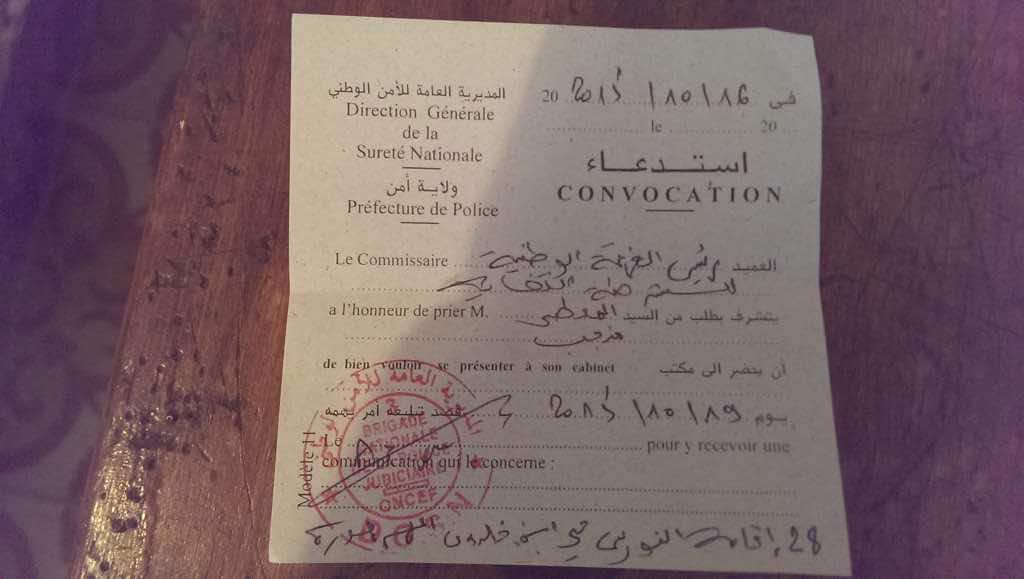 المديرية العامة للأمن الوطني
Direction Générale
de la
Sureté Nationale
ولاية أمن
Préfecture de Police
في 16/10/201 20
le 20
استدعاء
CONVOCATION
Le Commissaire رئيس الفرقة الوطنية العميد
للشرطة القضائية
a l'honneur de prier M. يتشرف بطلب من السيد
de bien vouloir se présenter à son cabinet أن يحضر الى مكتب
يوم 19/10/201 قصد تبليغه أمر يهمه
Le pour y recevoir une
communication qui le concerne :
Modèle 11
المديرية العامة للأمن
BRIGADE
NATIONALE
JUDICIAIRE
28، إقامة حي ابن خلدون